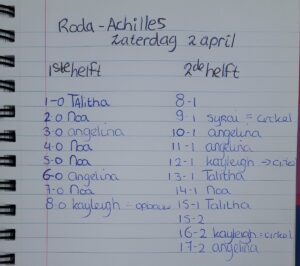 Roda - Achilles
Zaterdag 2 april
1ste helft
1-0 Talitha
2-0 Noa
3-0 angelina
4-0 Noa
5-0 Noa
6-0 angelina
7-0 Noa
8-0 kayleigh = opbouw
2de helft
8-1
9-1 Syrai = cirkel
10-1 angelina
11-1 angelina
12-1 kayleigh -> cirkel
13-1 Talitha
14-1 Noa
15-1 Talitha
15-2
16-2 kayleigh = cirkel
17-2 angelina